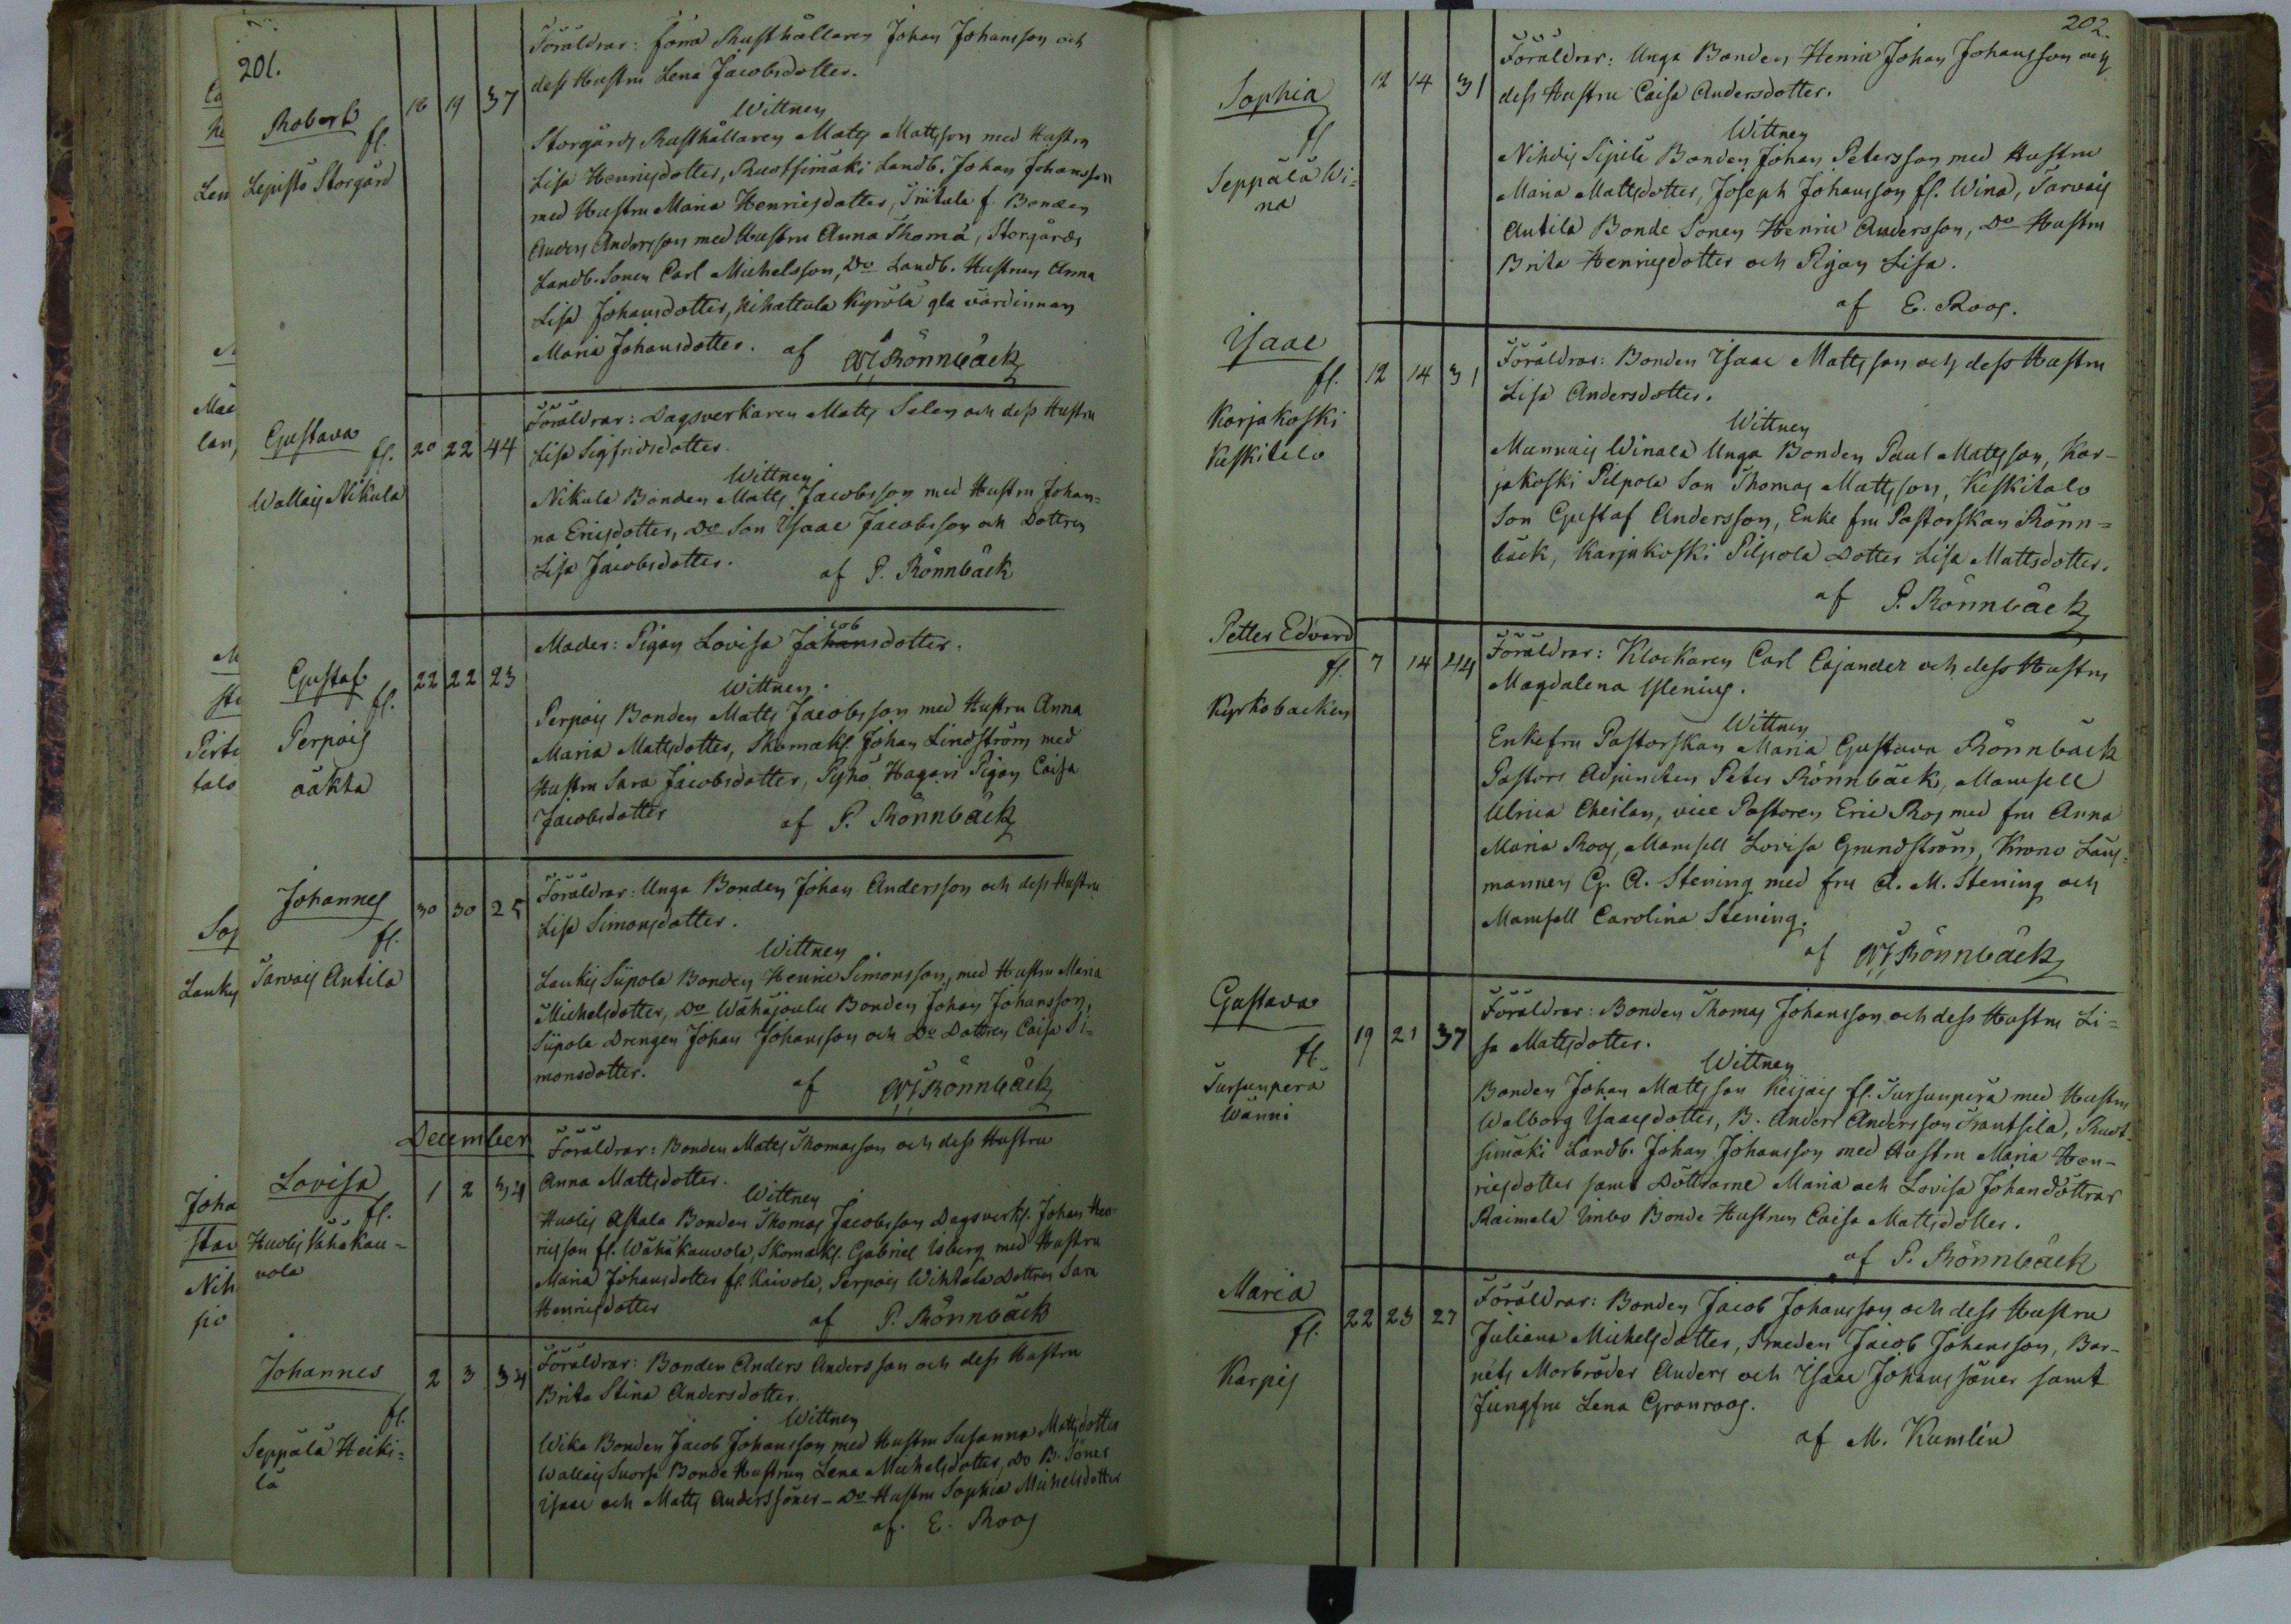 201.
Robert
fl.
Lepistö Storgård
18 19 37
Föräldrar: förra Rusthållaren Johan Johansson och
dess Hustru Lena Jacobsdotter.
Wittnen
Storgårds Rusthållaren Matts Mattsson med Hustru
Lisa Henricsdotter, Ruotsimäki Landb. Johan Johansson
med Hustru Maria Henricsdotter, f. Bonden
Anders Andersson med Hustru Anna Thoma, Storgårds
Landb. Sonen Carl Michelsson, Do Landb. Hustrun Anna
Lisa Johansdotter, Nihattula Kyrölä gla värdinnan
Maria Johansdotter. af Rönnbäck
Gustava fl.
Wallais Nikula
20 22 44
Föräldrar: Dagsverkaren Matts Selen och dess Hustru
Lisa Sigfridsdotter.
Wittnen
Nikula Bonden Matts Jacobsson med Hustru Johan=
na Ericsdotter, Do Son Isaac Jacobsson och Dottren
Lisa Jacobsdotter. af P. Rönnbäck
Gustaf
fl.
Perpois
22 22 23
Moder: Pigan Lovisa Jacobsdotter.
Wittnen.
Perpois Bonden Matts Jacobsson med Hustru Anna
Maria Mattsdotter, Skomak. Johan Lindström med
Hustru Sara Jacobsdotter, Pyhö Hagari Pigan Caisa
Jacobsdotter af P. Rönnbäck
Johannes
fl.
Tarvais Antila
30 30 25
Föräldrar: Unga Bonden Johan Andersson och dess Hustru
Lisa Simonsdotter.
Wittnen
Laukis Siipola Bonden Henric Simonsson, med Hustru Maria
Michelsdotter, Do Wähäjoulu Bonden Johan Johansson,
Siipola Drengen Johan Johansson och Do Dottren Caisa Si=
monsdotter. af Rönnbäck
December
Lovisa
fl.
Huovis Vähäkau=
vola
1 2 34
Föräldrar: Bonden Matts Thomasson och dess Hustru
Anna Mattsdotter.
Wittnen
Huovis Astala Bonden Thomas Jacobsson Dagsverk. Johan Hen=
ricsson fl. Wähäkauvola, Skomak. Gabriel Isberg med Hustru
Maria Johansdotter fr. Kaivola, Perpois Wihtala Dottren Sara
Henricsdotter af P. Rönnbäck
Johannes
fl.
Seppälä Heiki=
lä
2 3 34
Föräldrar: Bonden Anders Andersson och dess Hustru
Brita Stina Andersdotter.
Wittnen
Wika Bonden Jacob Johansson med Hustru Susanna Mattsdotter
Wallais Suorsa Bonde Hustrun Lena Michelsdotter, Do B. Söner
Isaac och Matts Anderssöner – Do Hustru Sophia Michelsdotter
af. E. Roos
202.
Sophia
fl
Seppälä Wi=
na
12 14 31
Föräldrar: Unga Bonden Henric Johan Johansson och
dess Hustru Caisa Andersdotter.
Wittnen
Nihdis Sipilä Bonden Johan Petersson med Hustru
Maria Mattsdotter, Joseph Johansson fl. Wina, Tarvais
Antila Bonde Sonen Henric Andersson, Do Hustru
Brita Henricsdotter och Pigan Lisa.
af E. Roos.
Isaac
fl.
Karjakoski
Keskitalo
12 14 31
Föräldrar: Bonden Isaac Mattsson och dess Hustru
Lisa Andersdotter.
Wittnen
Munnuis Winala Unga Bonden Paul Mattsson, Kar-
jakoski Pilpola Son Thomas Mattsson, Keskitalo
Son Gustaf Andersson, Enke fru Pastorskan Rönn=
bäck, Karjakoski Pilpola Dotter Lisa Mattsdotter.
af P. Rönnbäck
Petter Edvard
fl.
Kyrkobacken
7 14 44
Föräldrar: Klockaren Carl Cajander och dess Hustru
Magdalena Ylenius.
Wittnen
Enkefru Pastorskan Maria Gustava Rönnbäck
Pastors Adjuncten Peter Rönnbäck, Mamsell
Ulrica Cheilan, vice Pastoren Eric Ros med fru Anna
Maria Roos, Mamsell Lovisa Grundström, Krono Läns=
mannen G. A. Stening med fru A. M. Stening och
Mamsell Carolina Stening.
af Rönnbäck
Gustava
fl.
Tursunperä
Wänni
19 21 37
Föräldrar: Bonden Thomas Johansson och dess Hustru Li=
sa Mattsdotter.
Wittnen
Bonden Johan Mattsson Keijais fl. Tursunperä med Hustru
Walborg Isaacsdotter, B. Anders Andersson Frantsila, Ruot-
simäki Landb. Johan Johansson med Hustru Maria Hen-
ricsdotter samt Döttrarne Maria och Lovisa Johandöttrar
Raimela Bonde Hustrun Caisa Mattsdotter.
af P. Rönnbäck
Maria
fl.
Karpis
22 23 27
Föräldrar: Bonden Jacob Johansson och dess Hustru
Juliana Michelsdotter, Smeden Jacob Johansson, Bar-
nets Morbröder Anders och Isaac Johanssöner samt
Jungfru Lena Granroos.
af M. Kumlin